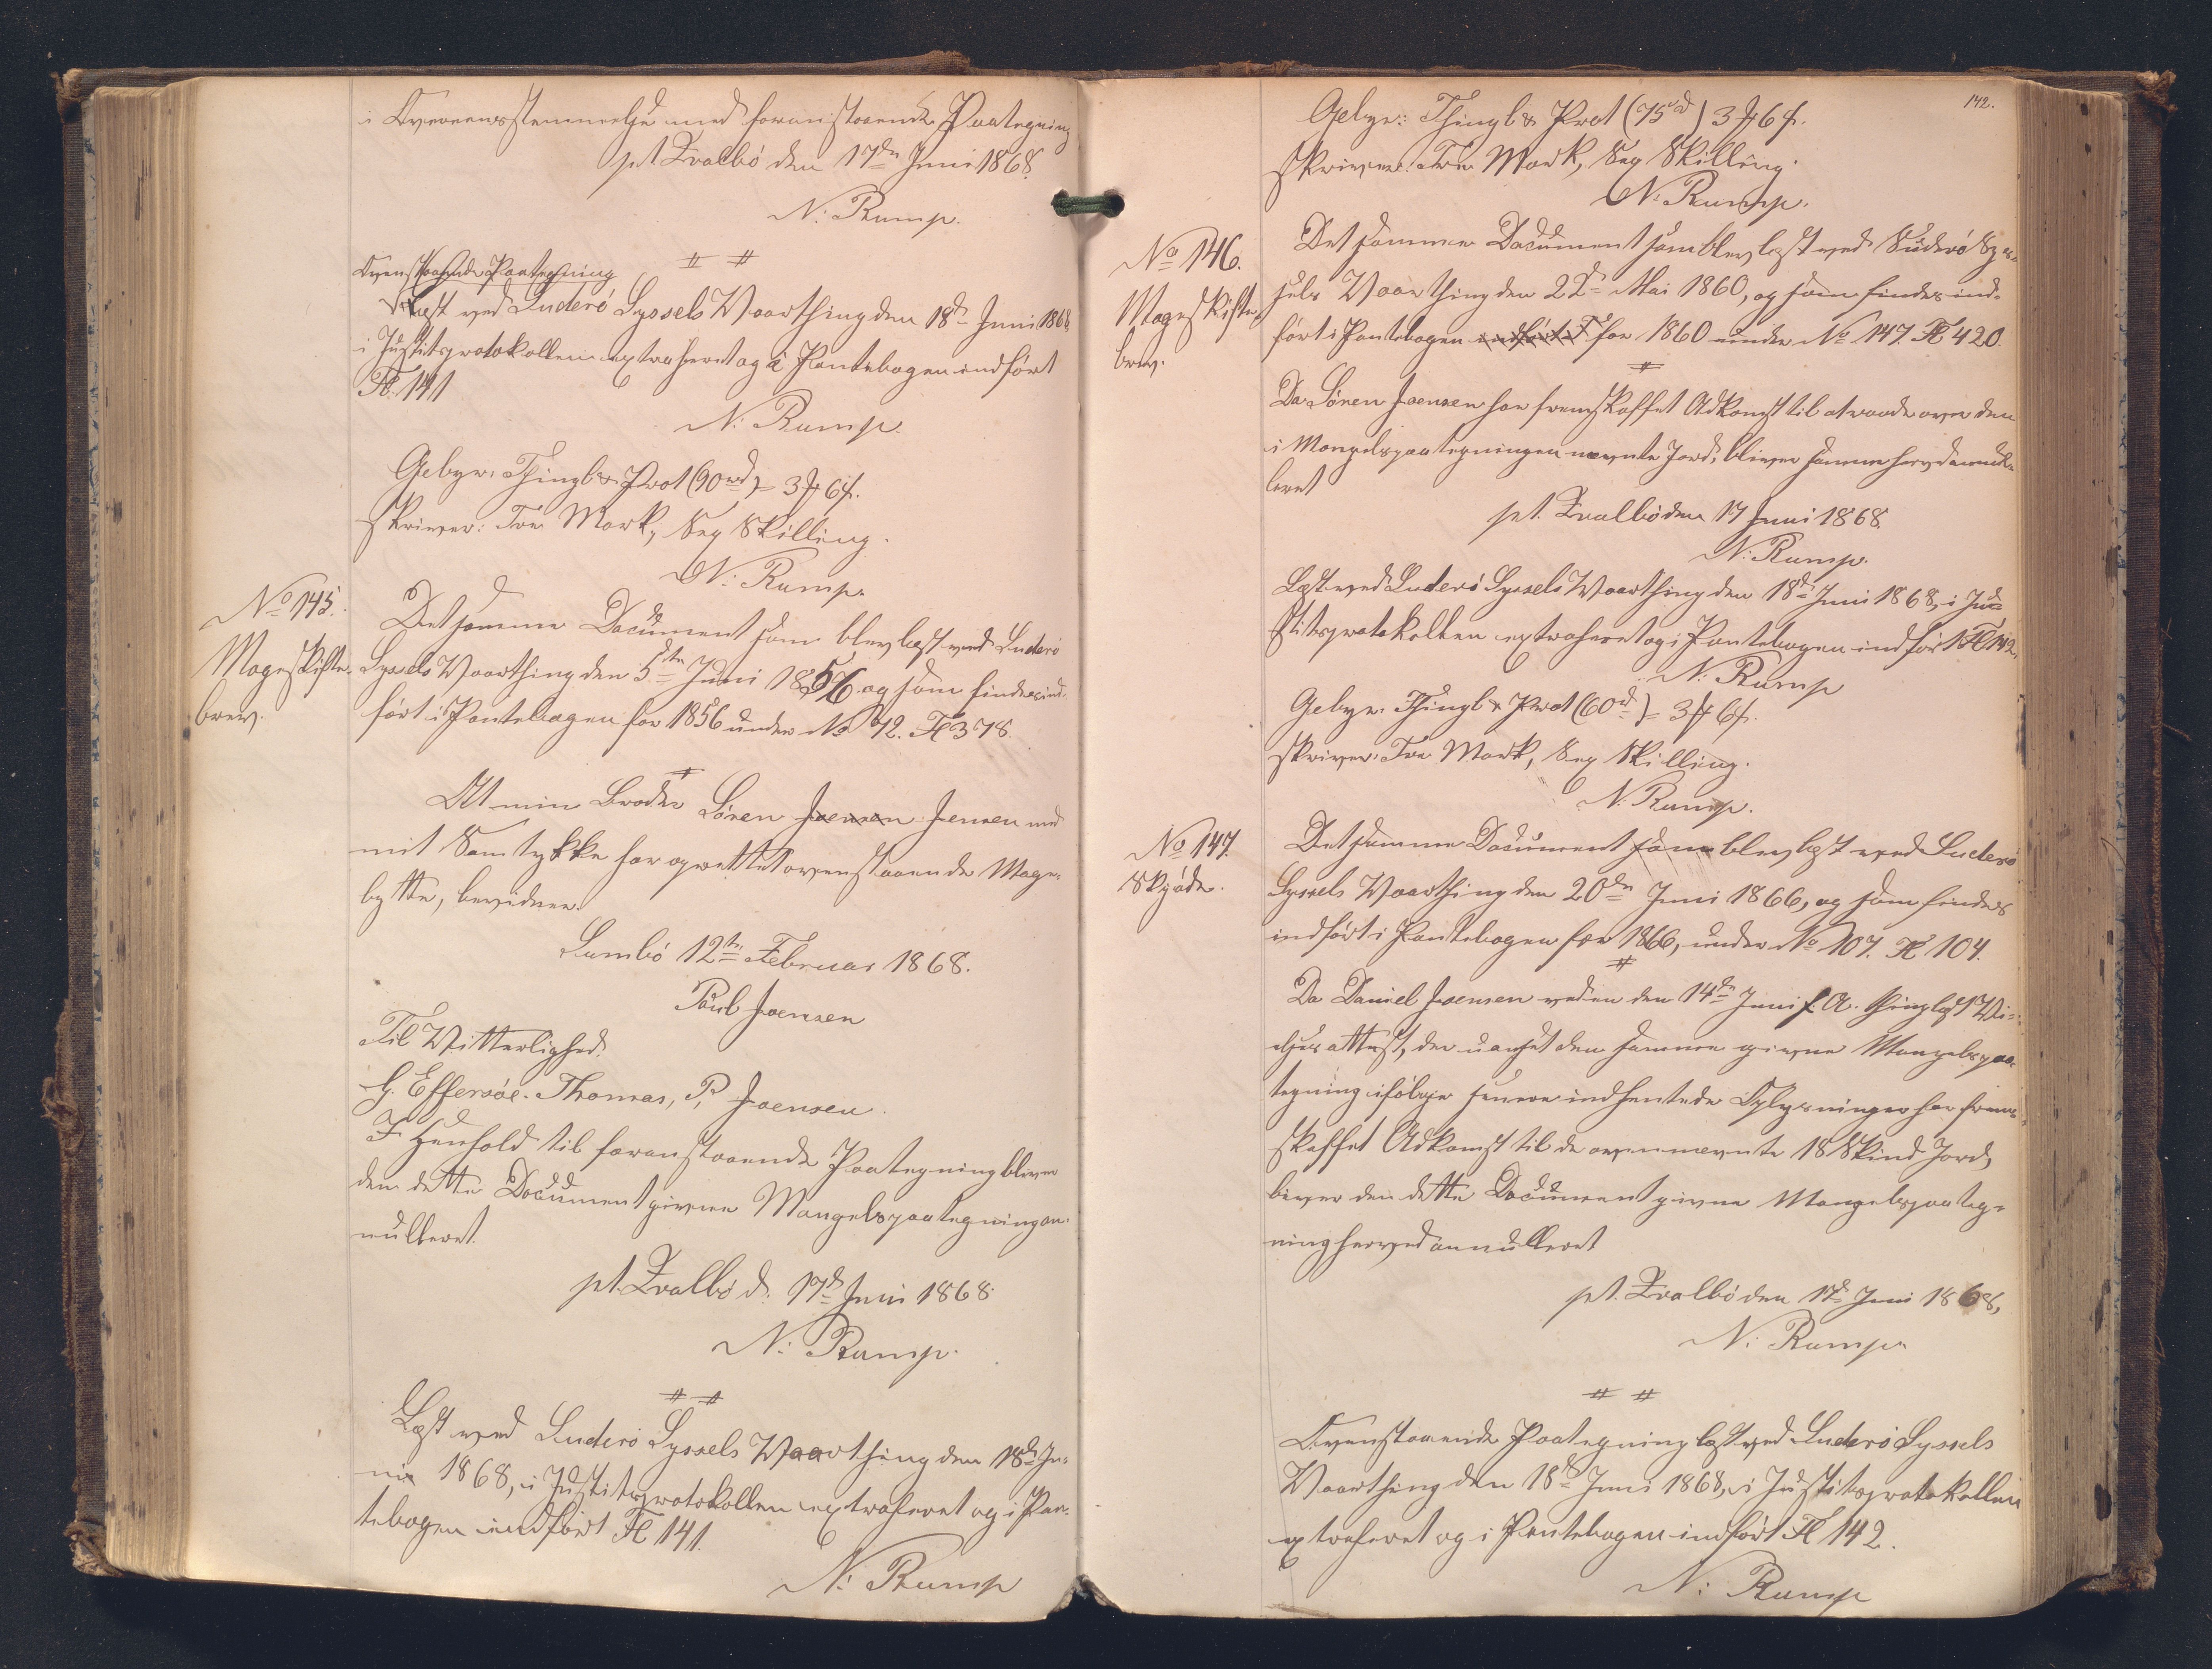 i Overeensstemmelse med foranstaaende Paategning
pt Qvalbö den 17de Juni 1868.
N. Rump.
Ovenstaaende Paategning
Læst ved Suderö Syssels Vaarthing den 18de Juni 1868
i Justitsprotokollen extraheret og i Pantebogen indfört
Fol 141
N. Rump.
Gebyr: Thingl & Prot (90rd) = 3 # 6 s.
skriver: Tre Mark, Sex Skilling.
N. Rump.
No 145.
Mageskifte-
brev.
Det samme Document som blev læst ved Suderö
Syssels Vaarthing den 5te Juni 1856 og som findes ind-
fört i Pantebogen for 1856 under No 72. Fol 378.
At min Broder Sören Joensen Jensen med
mit Samtykke har oprettet ovenstaaende Mage-
bytte, bevidner.
Sumbö 12te Februar 1868.
Poul Joensen
Til Vitterlighed.
G. Effersöe. Thomas, P, Joensen.
I Henhold til foranstaaende Paategning bliver
den dette Document givne Mangelspaategning an-
nulleret.
pt. Qvalbö d. 17de Juni 1868.
N. Rump.
Læst ved Suderö Syssels Vaarthing den 18de Ju-
ni 1868, i Justitsprotokollen extraheret og i Pan-
tebogen indfört Fol 141.
N. Rump
142.
Gebyr: Thingl & Prot (75rd) 3 # 6 s.
skriver: Tre Mark, Sex Skilling.
N. Rump.
No 146.
Mageskifte-
brev.
Det samme Document som blev læst ved Suderö Sys-
sels Vaarthing den 22de Mai 1860, og som findes ind-
fört i Pantebogen indfört for 1860 under No 147. Fol 420.
Da Sören Joensen har fremskaffet Adkomst til at raade over den
i Mangelspaategningen nævnte Jord, bliver samme herved annul-
leret
pt. Qvalbö den 17 Juni 1868.
N. Rump.
Læst ved Suderö Syssels Vaarthing den 18de Juni 1868, i Ju-
stitsprotokollen extraheret og i Pantebogen indfört Fol 142.
N. Rump
Gebyr: Thingl & Prot (60rd) = 3 # 6 s.
skriver: Tre Mark, Sex Skilling.
N. Rump.
No 147.
Skjöde.
Det samme Document som blev læst ved Suderö
Syssels Vaarthing den 20de Juni 1866, og som findes
indfört i Pantebogen for 1866, under No 107. Fol 104.
Da Daniel Joensen ved en den 14de Juni f. A. thinglæst Vi-
elses attest, der uanset den samme givne Mangelspaa-
tegning ifölge senere indhentede Oplysninger har frem-
skaffet Adkomst til de ovennævnte 18 Skind Jord,
bliver den dette Document givne Mangelspaateg-
ning herved annulleret
pt. Qvalbö den 17de Juni 1868,
N. Rump.
Ovenstaaende Paategning læst ved Suderö Syssels
Vaarthing den 18de Juni 1868, i Justitsprotokollen
extraheret og i Pantebogen indfört Fol 142.
N. Rump